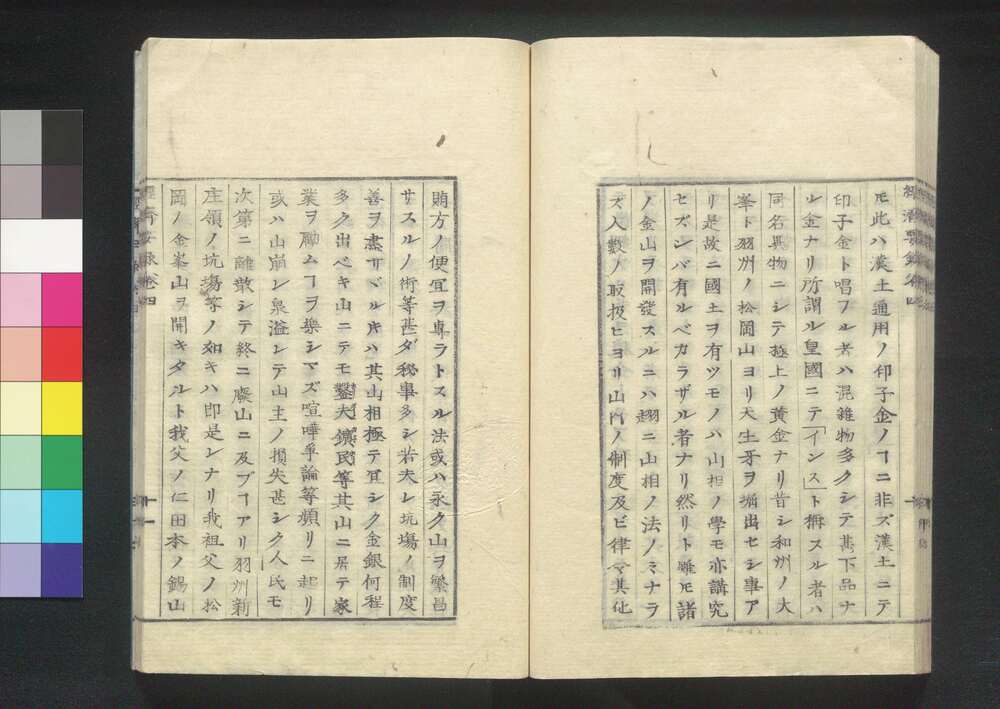 経濟要録巻四
𪜈此ハ漢土通用ノ印子金ノヿニ非ズ漢土ニテ
印子金ト唱フル者ハ混雜物多クシテ甚下品ナ
ル金ナリ所謂ル皇國ニテ「インス」ト稱スル者ハ
同名異物ニシテ極上ノ黄金ナリ昔シ和州ノ大
峯ト羽州ノ松岡山ヨリ天生牙ヲ掘出セシ事ア
リ是故ニ國土ヲ有ツモノハ山相ノ學モ亦講究
セズンバ有ルベカラザル者ナリ然リト雖𪜈諸
ノ金山ヲ開發スルニハ趐ニ山相ノ法ノミナラ
ズ人數ノ取扱ヒヨリ山内ノ制度及ビ律令其他
賄方ノ便宜ヲ專ラトスル法或ハ永ク山ヲ繁昌
サスルノ術等甚ダ秘事多シ若夫レ坑場ノ制度
善ヲ盡サヾル𪜈ハ其山相極テ宜シク金銀何程
多ク出ベキ山ニテモ鑿夫鑛民等其山ニ居テ家
業ヲ勵ムヿヲ樂シマズ喧嘩爭論等頻リニ起リ
或ハ山崩レ泉溢レテ山主ノ損失甚シク人民モ
次第ニ離散シテ終ニ廢山ニ及ブヿアリ羽州新
庄領ノ坑場等ノ如キハ即是レナリ我祖父ノ松
岡ノ金峯山ヲ開キタルト我父ノ仁田本ノ錫山